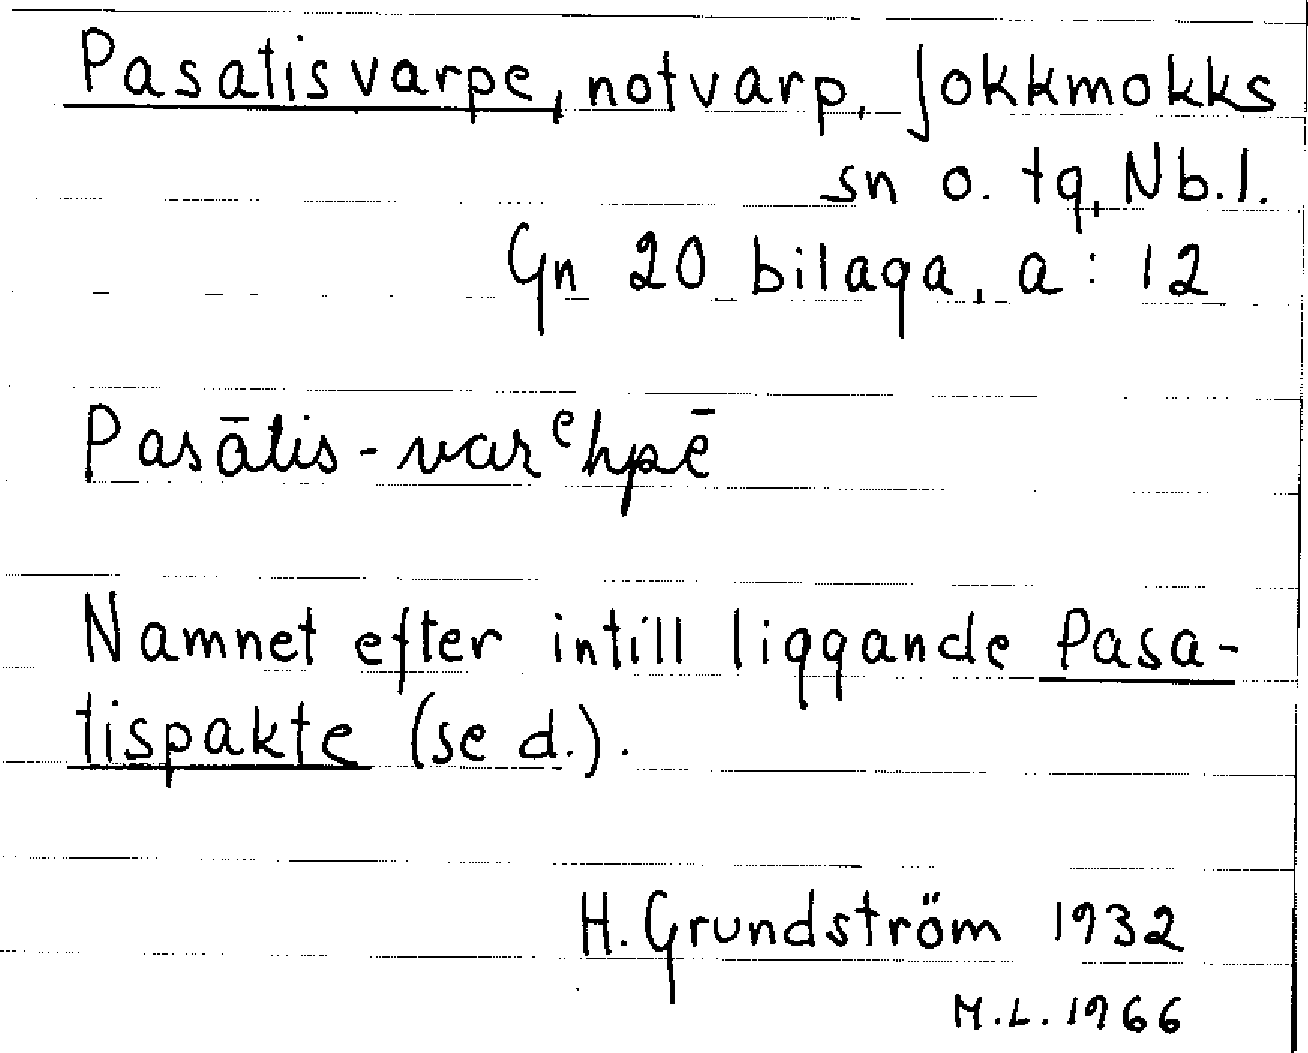 Pasatisvarpe, notvarp, Jokkmokks
sn o. tg, Nb.l.
Gn 20 bilaga, a: 12
Pasātis-varᵉhpē
Namnet efter intill liggande Pasa-
tispakte (se d.).
H. Grundström 1932
M.L. 1966